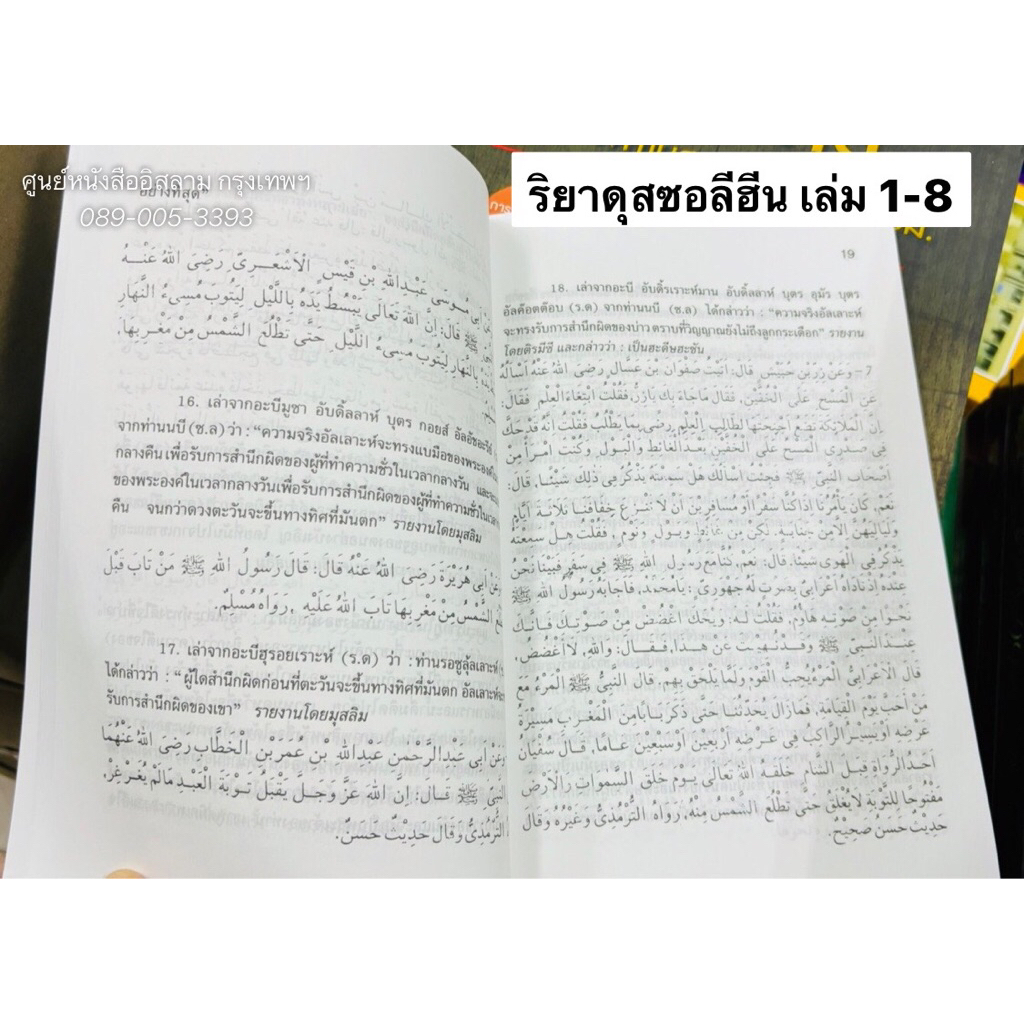 ศูนย์หนังสืออิสลาม กรุงเทพฯ
089-005-3393
ริยาดุสซอลีฮีน เล่ม 1-8
อย่างที่สุด"
مُوسَى عَبْدِاللهِ بْنِ قَيْسٍ الْأَشْعَــرِىِّ رَضِىَ اللهُ عَنْــهُ
ﷺ قَالَ: إِنَّ اللهَ تَعَالَى يَبْسُطُ يَدَهُ بِاللَّيْلِ لِيَتُوبَ مُسِىءُ النَّهَارِ
بِالنَّهَارِ لِيَتُوبَ مُسِىءُ اللَّيْلِ حَتَّى تَطْلُعَ الشَّمْسُ مِنْ مَغْرِبِهَا,
16. เล่าจากอะบีมูซา อับดิ้ลลาห์ บุตร กอยส์ อัลอัชอะรีย์
จากท่านนบี (ซ.ล) ว่า : "ความจริงอัลเลาะห์จะทรงแบมือของพระองค์
กลางคืน เพื่อรับการสำนึกผิดของผู้ที่ทำความชั่วในเวลากลางวัน
ของพระองค์ในเวลากลางวันเพื่อรับการสำนึกผิดของผู้ที่ทำความชั่วในเวลา
คืน จนกว่าดวงตะวันจะขึ้นทางทิศที่มันตก" รายงานโดยมุสลิม
أَبِى هُرَيْرَةَ رَضِىَ اللهُ عَنْهُ قَالَ: قَالَ رَسُولُ اللهِ ﷺ مَنْ تَابَ قَبْلَ
الشَّمْسُ مِنْ مَغْرِبِهَا تَابَ اللهُ عَلَيْهِ , رَوَاهُ مُسْلِمٌ.
17. เล่าจากอะบีฮุรอยเราะห์ (ร.ด) ว่า : ท่านรอซูลุ้ลเลาะห์
ได้กล่าวว่า : "ผู้ใดสำนึกผิดก่อนที่ตะวันจะขึ้นทางทิศที่มันตก อัลเลาะห์
รับการสำนึกผิดของเขา" รายงานโดยมุสลิม
أَبِى عَبْدِالرَّحْمٰنِ عَبْدِاللهِ بْنِ عُمَرَ بْنِ الْخَطَّابِ رَضِىَ اللهُ عَنْهُمَا
ﷺ قَالَ: إِنَّ اللهَ عَزَّ وَجَلَّ يَقْبَلُ تَوْبَةَ الْعَبْدِ مَالَمْ يُغَرْغِرْ,
التِّرْمِذِىُّ وَقَالَ حَدِيثٌ حَسَنٌ.
19
18. เล่าจากอะบี อับดิ้รเราะห์มาน อับดิ้ลลาห์ บุตร อุมัร บุตร
อัลค๊อตต๊อบ (ร.ด) จากท่านนบี (ซ.ล) ได้กล่าวว่า : "ความจริงอัลเลาะห์
จะทรงรับการสำนึกผิดของบ่าว ตราบที่วิญญาณยังไม่ถึงลูกกระเดือก" รายงาน
โดยติรมีซี และกล่าวว่า : เป็นฮะดีษฮะซัน
7- وَعَنْ زِرِّبْنِ حُبَيْشٍ قَالَ: أَتَيْتُ صَفْوَانَ بْنَ عَسَّالٍ رَضِىَ اللهُ عَنْهُ أَسْأَلُهُ
عَنِ الْمَسْحِ عَلَى الْخُفَّيْنِ, فَقَالَ مَاجَاءَ بِكَ يَازِرُّ, فَقُلْتُ ابْتِغَاءَ الْعِلْمِ فَقَالَ:
إِنَّ الْمَلَائِكَةَ تَضَعُ أَجْنِحَتَهَا لِطَالِبِ الْعِلْمِ رِضًى بِمَا يَطْلُبُ فَقُلْتُ إِنَّهُ قَدْحَكَّ
فِى صَدْرِى الْمَسْحُ عَلَى الْخُفَّيْنِ بَعْدَ الْغَائِطِ وَالْبَوْلِ, وَكُنْتَ امْرَأً مِنْ
أَصْحَابِ النَّبِىِّ ﷺ فَجِئْتُ أَسْأَلُكَ هَلْ سَمِعْتَهُ يَذْكُرُ فِى ذٰلِكَ شَيْئًا, قَالَ:
نَعَمْ, كَانَ يَأْمُرُنَا إِذَا كُنَّا سَفْرًا أَوْمُسَافِرِينَ أَنْ لَانَنْزِعَ خِفَافَنَا ثَلَاثَةَ أَيَّامٍ
وَلَيَالِيَهُنَّ إِلَّا مِنْ جَنَابَةٍ, لٰكِنْ مِنْ غَائِطٍ وَبَوْلٍ, وَنَوْمٍ, فَقُلْتُ هَلْ سَمِعْتَهُ
يَذْكُرُ فِى الْهَوَى شَيْئًا, قَالَ: نَعَمْ, كُنَّا مَعَ رَسُولِ اللهِ ﷺ فِى سَفَرٍ فَبَيْنَا نَحْنُ
عِنْدَهُ إِذْنَادَاهُ أَعْرَابِىٌّ بِصَوْتٍ لَهُ جَهْوَرِىٍّ: يَامُحَمَّدُ, فَأَجَابَهُ رَسُولُ اللهِ ﷺ
نَحْوًا مِنْ صَوْتِهِ هَاؤُمْ, فَقُلْتُ لَهُ: وَيْحَكَ اغْضُضْ مِنْ صَوْتِكَ فَإِنَّكَ
عِنْدَ النَّبِىِّ ﷺ وَقَدْ نُهِيتَ عَنْ هٰذَا, فَقَالَ: وَاللهِ, لَاأَغْضُضُ,
قَالَ الْأَعْرَابِىُّ الْمَرْءُ يُحِبُّ الْقَوْمَ وَلَمَّا يَلْحَقْ بِهِمْ, قَالَ النَّبِىُّ ﷺ الْمَرْءُ مَعَ
مَنْ أَحَبَّ يَوْمَ الْقِيَامَةِ, فَمَازَالَ يُحَدِّثُنَا حَتَّى ذَكَرَ بَابًا مِنَ الْمَغْرِبِ مَسِيرَةُ
عَرْضِهِ أَوْيَسِيرُ الرَّاكِبُ فِى عَرْضِهِ أَرْبَعِينَ أَوْسَبْعِينَ عَامًا, قَالَ سُفْيَانُ
أَحَدُ الرُّوَاةِ قِبَلَ الشَّامِ خَلَقَهُ اللهُ تَعَالَى يَوْمَ خَلَقَ السَّمٰوَاتِ وَالْأَرْضَ
مَفْتُوحًا لِلتَّوْبَةِ لَايُغْلَقُ حَتَّى تَطْلُعَ الشَّمْسُ مِنْهُ, رَوَاهُ التِّرْمِذِىُّ وَغَيْرُهُ وَقَالَ
حَدِيثٌ حَسَنٌ صَحِيحٌ.